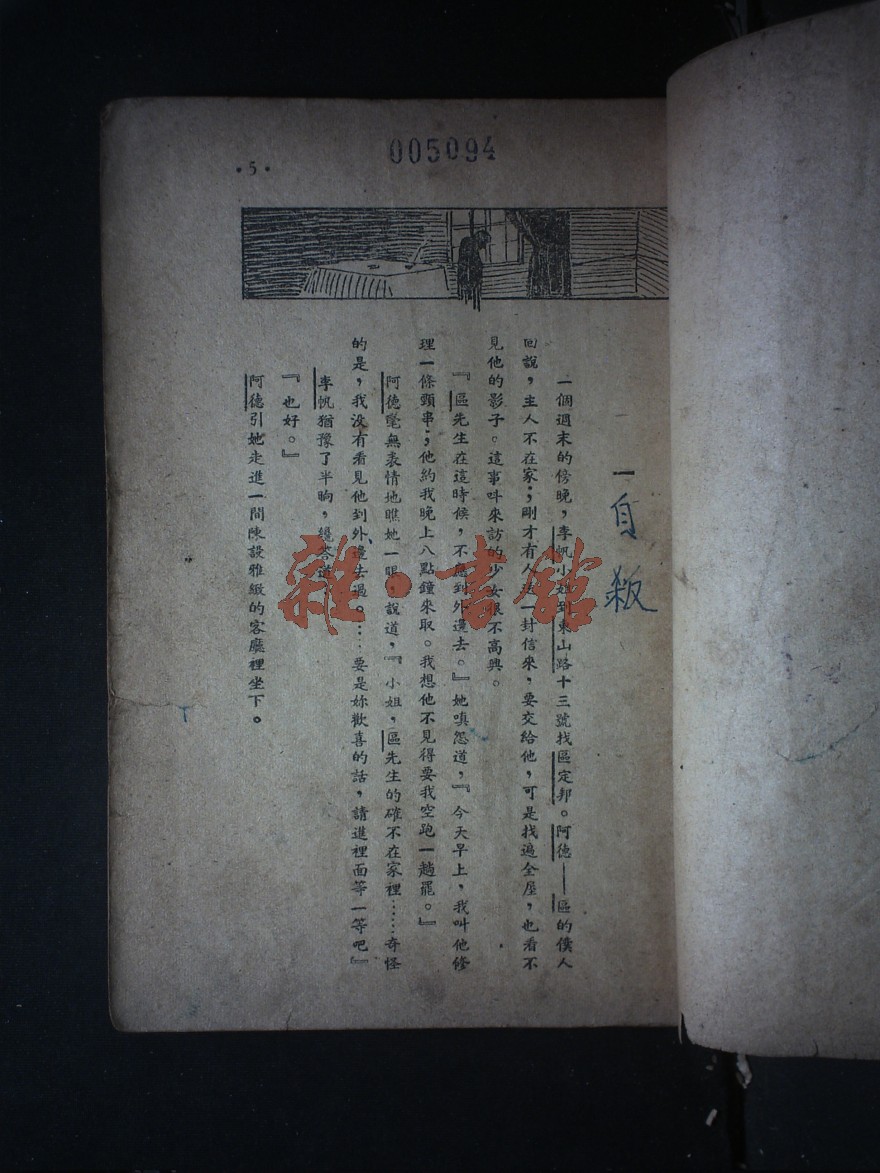 005094
•5•
一 自殺
一個週末的傍晚，李帆小姐到東山路十三號找區定邦。阿德——區的僕人
回說，主人不在家；剛才有人送一封信來，要交給他，可是找遍全屋，也看不
見他的影子。這事叫來訪的少女很不高興。
『區先生在這時候，不應到外邊去。』她嗔怨道，『今天早上，我叫他修
理一條頸串；他約我晚上八點鐘來取。我想他不見得要我空跑一趟罷。』
阿德毫無表情地瞧她一眼，說道，『小姐，區先生的確不在家裡……奇怪
的是，我没有看見他到外邊去過。……要是妳歡喜的話，請進裡面等一等吧』
李帆猶豫了半晌，纔答道
『也好。』
阿德引她走進一間陳設雅緻的客廳裡坐下。
雜·書館